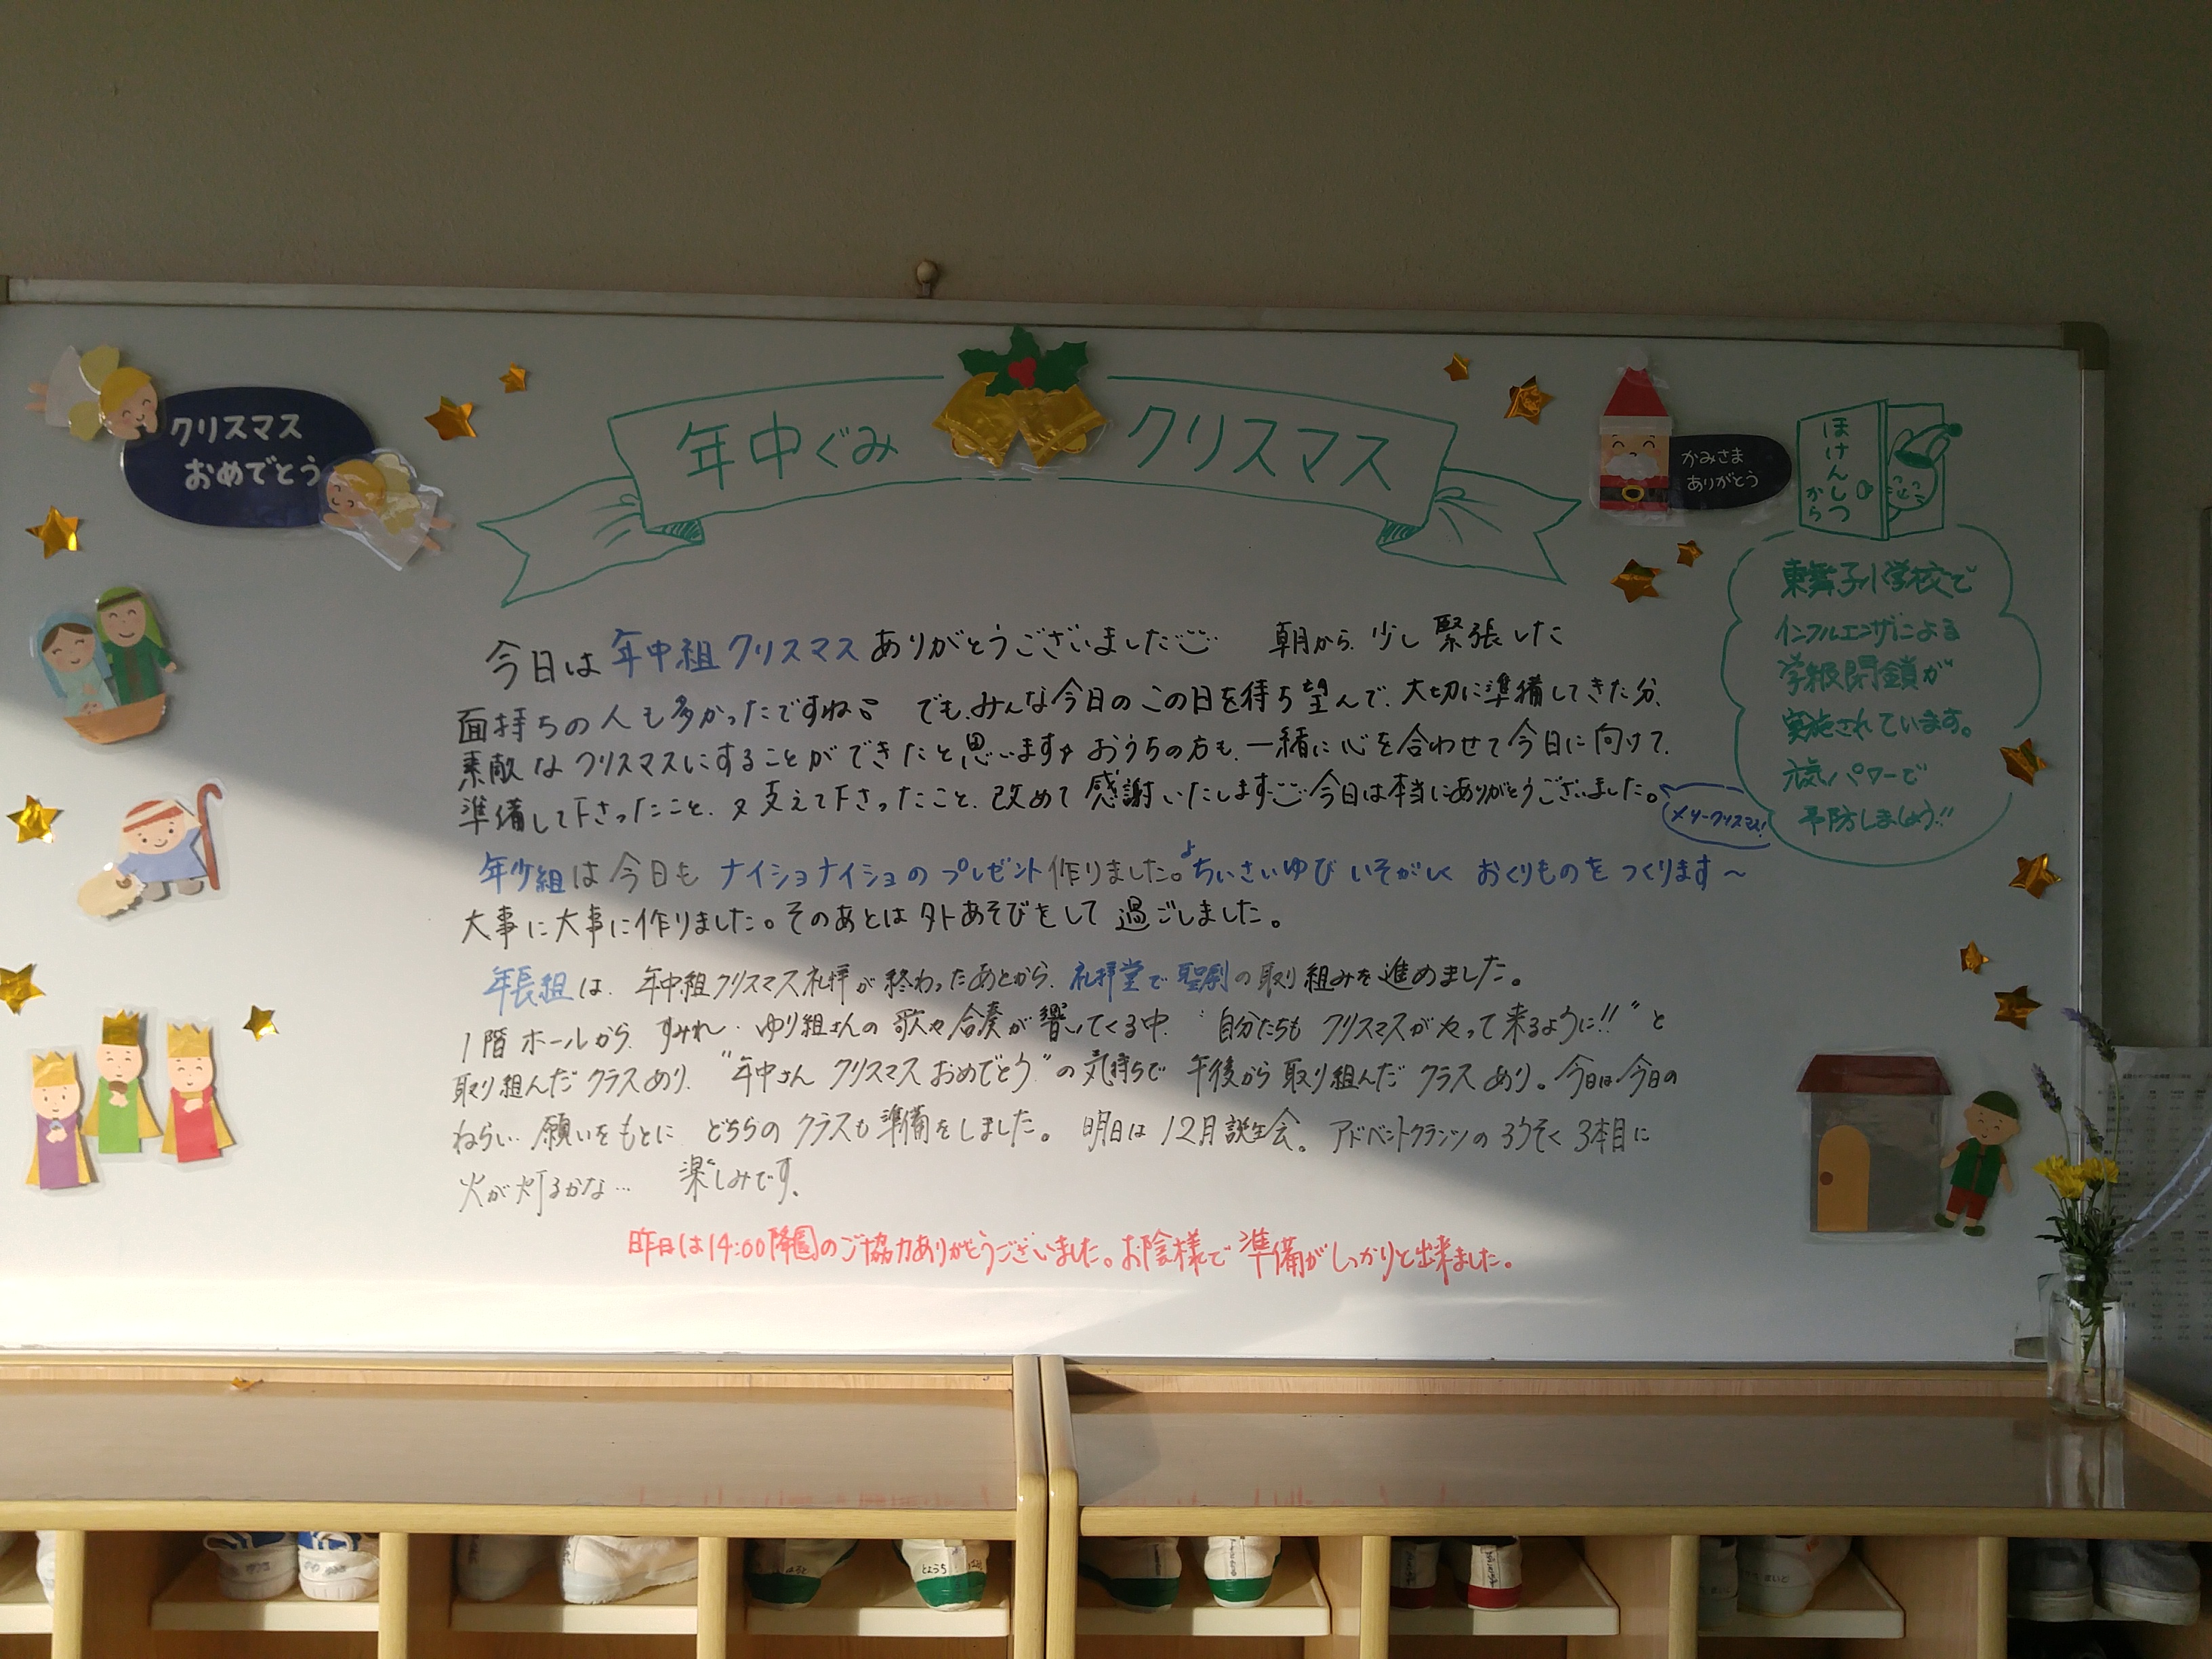 クリスマス
おめでとう
年中ぐみ クリスマス
かみさま
ありがとう
ほけんしつ
から
東舞子小学校で
インフルエンザによる
学級閉鎖が
実施されています。
元気パワーで
予防しましょう!!
今日は年中組クリスマスありがとうございました 朝から、少し緊張した
面持ちの人も多かったですね でも、みんな今日のこの日を待ち望んで、大切に準備してきた分、
素敵なクリスマスにすることができたと思います おうちの方も、一緒に心を合わせて今日に向けて、
準備して下さったこと、又支えて下さったこと、改めて感謝いたします 今日は本当にありがとうございました。
メリークリスマス!
年少組は今日もナイショナイショのプレゼント作りました。♪ちいさいゆび いそがしく おくりものを つくります〜
大事に大事に作りました。そのあとは外あそびをして過ごしました。
年長組は、年中組クリスマス礼拝が終わったあとから、礼拝堂で聖劇の取り組みを進めました。
1階ホールから、すみれ・ゆり組さんの歌や合奏が響いてくる中、“自分たちも クリスマスがやって来るように!!”と
取り組んだクラスあり、“年中さん クリスマス おめでとう”の気持ちで 午後から取り組んだ クラスあり。今日は今日の
ねらい、願いをもとに どちらのクラスも準備をしました。 明日は 12月誕生会。 アドベントクランツのろうそく 3本目に
火が灯るかな… 楽しみです。
昨日は14:00降園のご協力ありがとうございました。お陰様で準備がしっかりと出来ました。